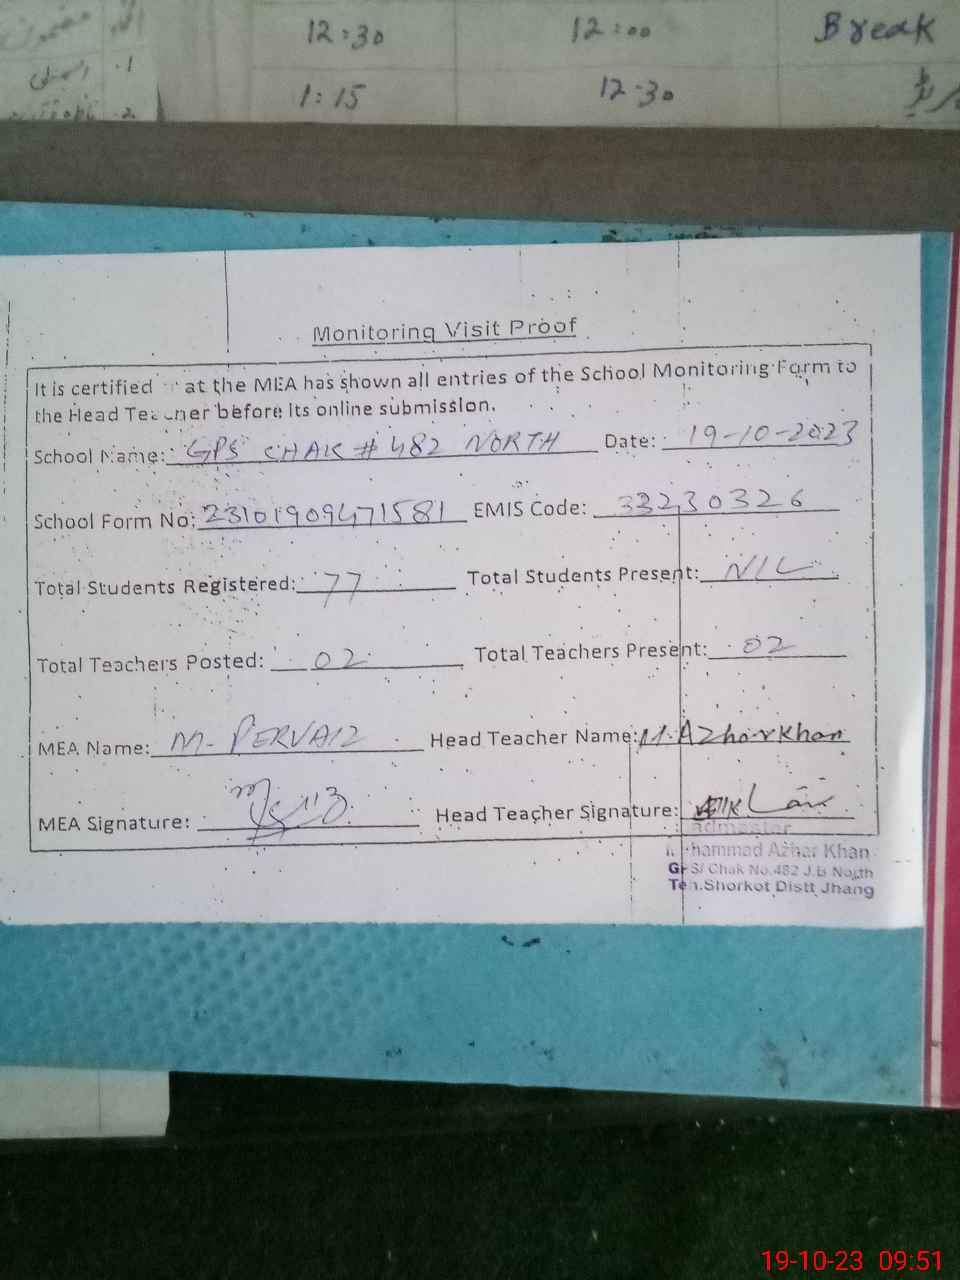 12:30 12:00 Break
1:15 12-30
Monitoring Visit Proof
It is certified at the MEA has shown all entries of the School Monitoring Form to
the Head Teacher before its online submission.
School Name: GPS CHAK # 482 NORTH Date: 19-10-2023
School Form No: 23101909471581 EMIS Code: 33230326
Total Students Registered: 77 Total Students Present: NIL
Total Teachers Posted: 02 Total Teachers Present: 02
MEA Name: M. PERVAIZ Head Teacher Name: M. Azhar Khan
MEA Signature: Head Teacher Signature:
admaster
hammad Azhar Khan
GPS/ Chak No.482 J.B North
Teh.Shorkot Distt Jhang
19-10-23 09:51